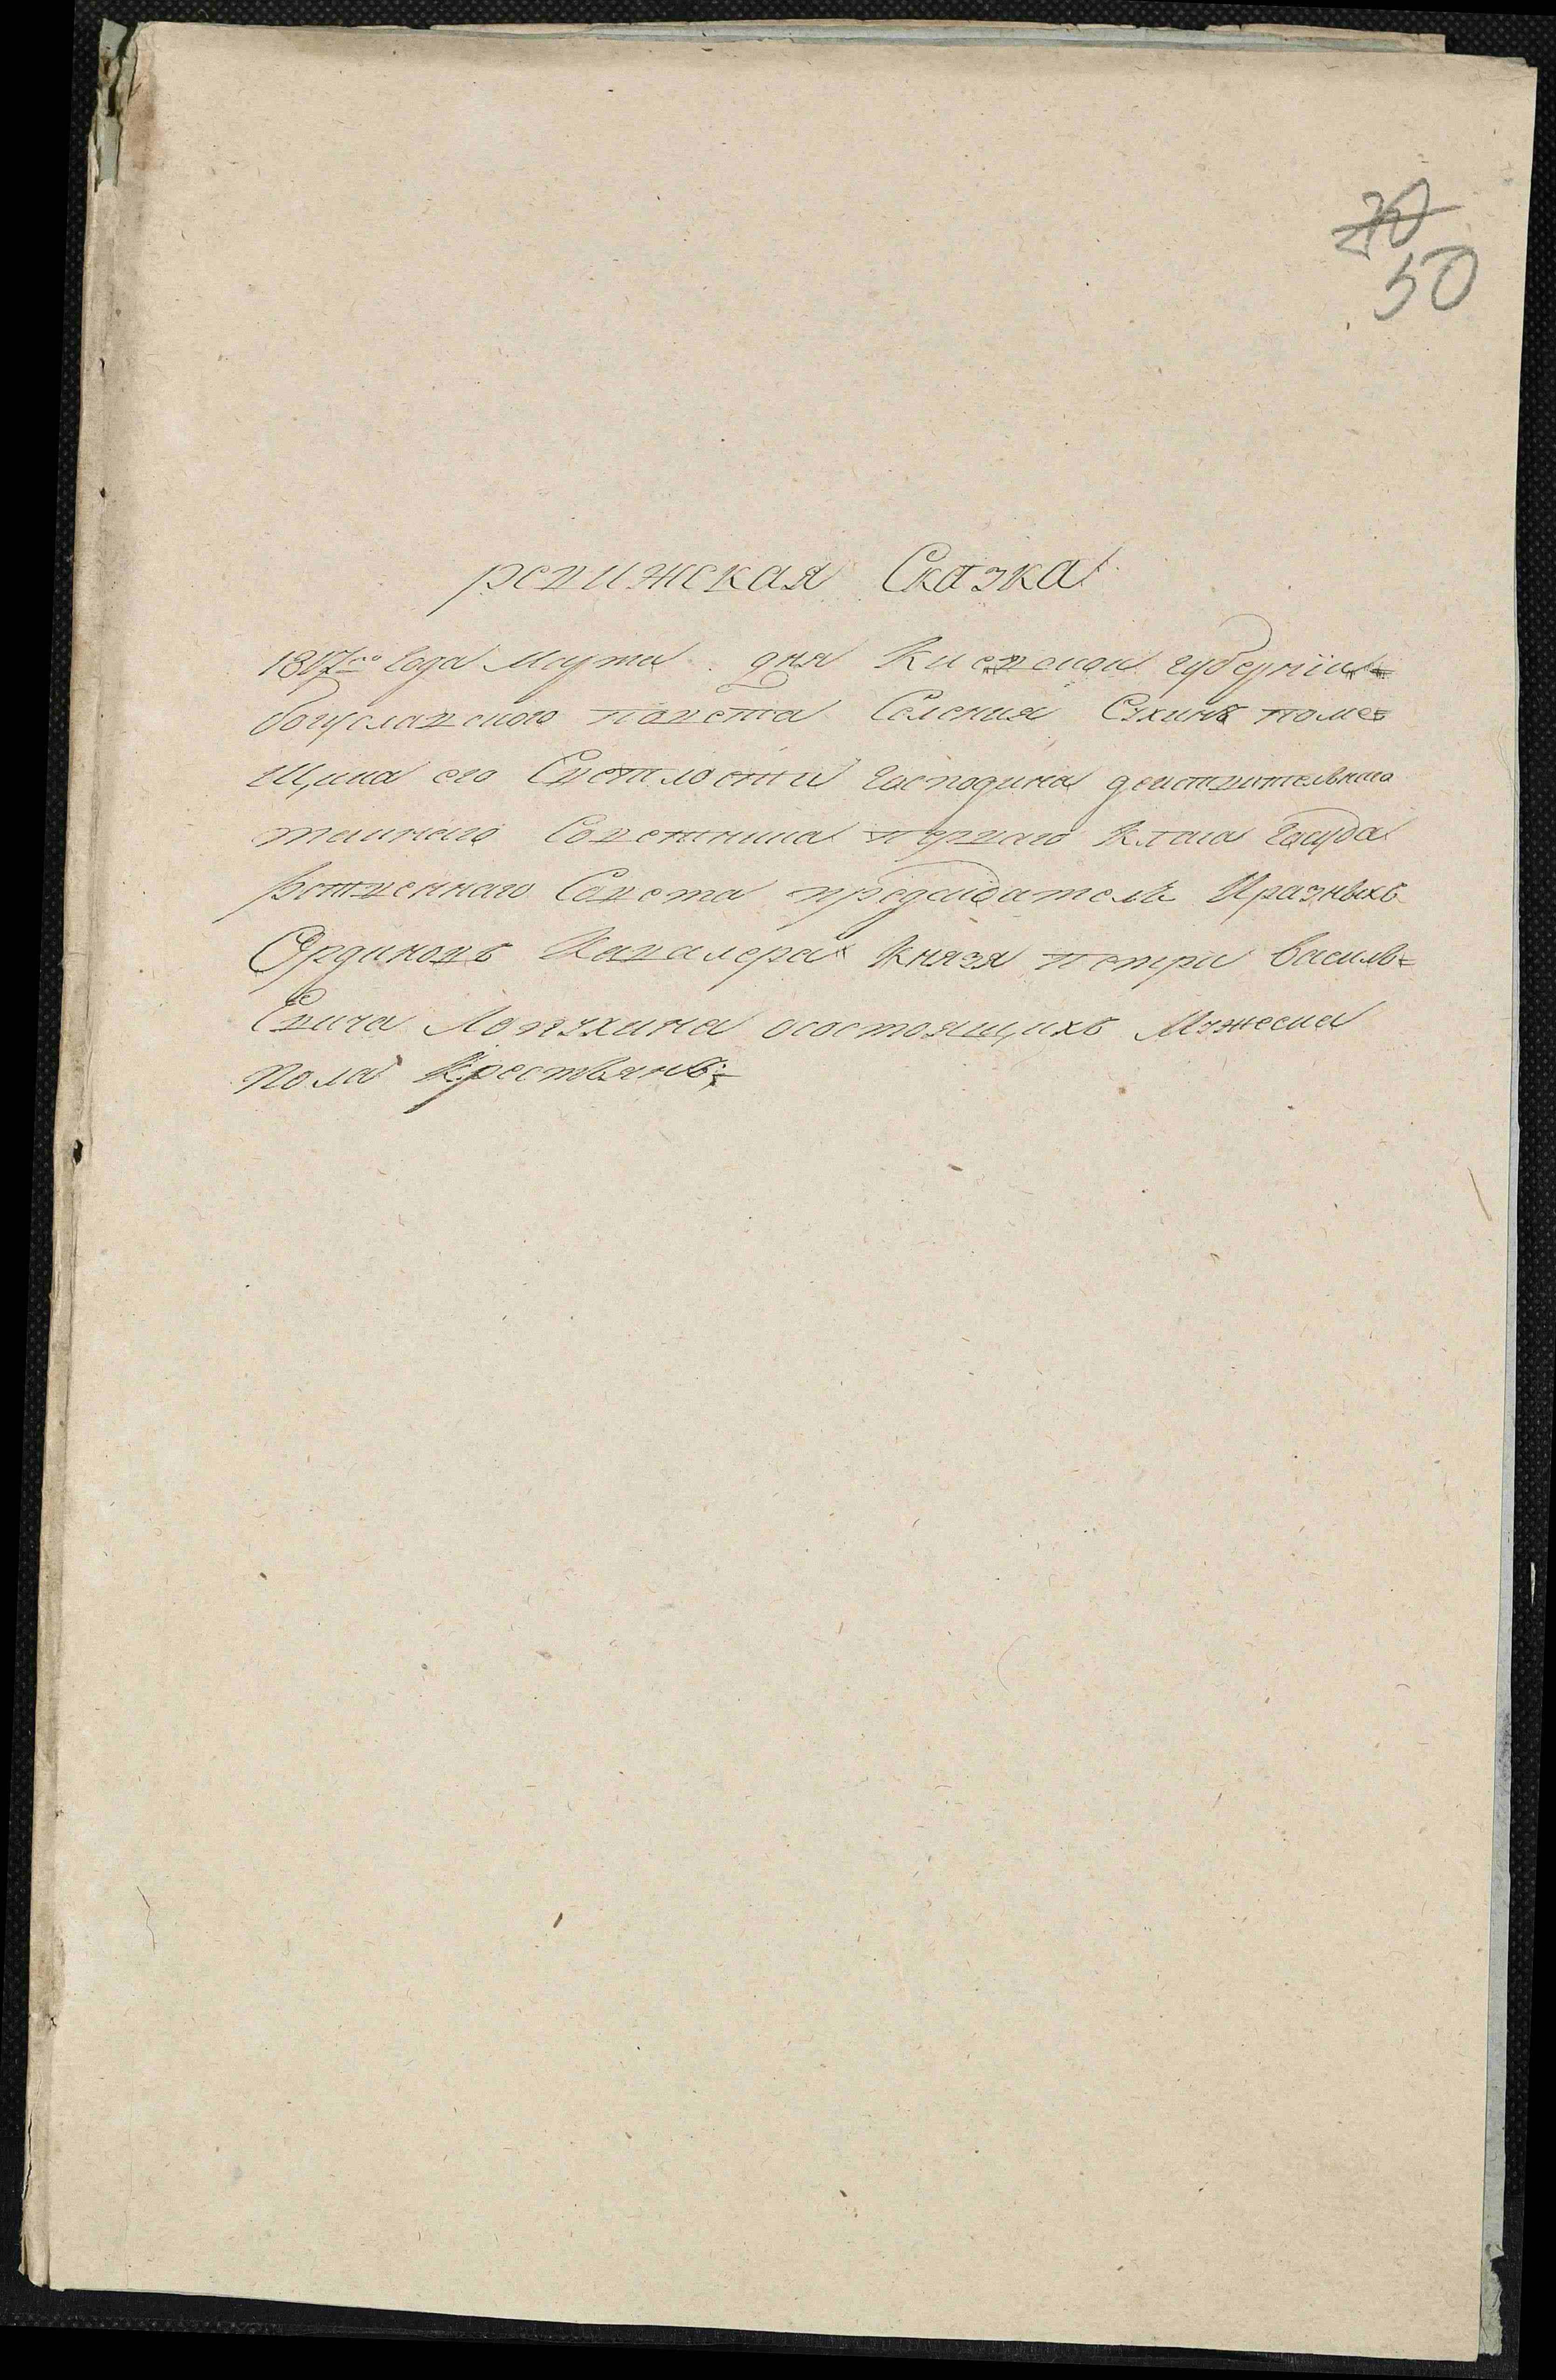 70
50
ревижская Сказка
1817го Года Марта дня Киевской губернїи
богуславского повета Селения Сухинъ поме=
Щика его Светлости Господина деиствительнаго
тайнаго Советника перваго Класа Госуда
рственнаго Совета председателя Иразныхъ
Ординовъ Кавалера Князя петра василь=
Евича Лопухина осостоящихъ Мужеска
пола Крестьянъ;=